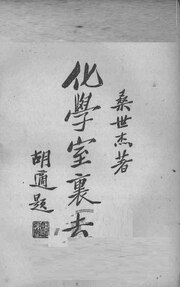 桑世杰著
化學室裏去
胡適題